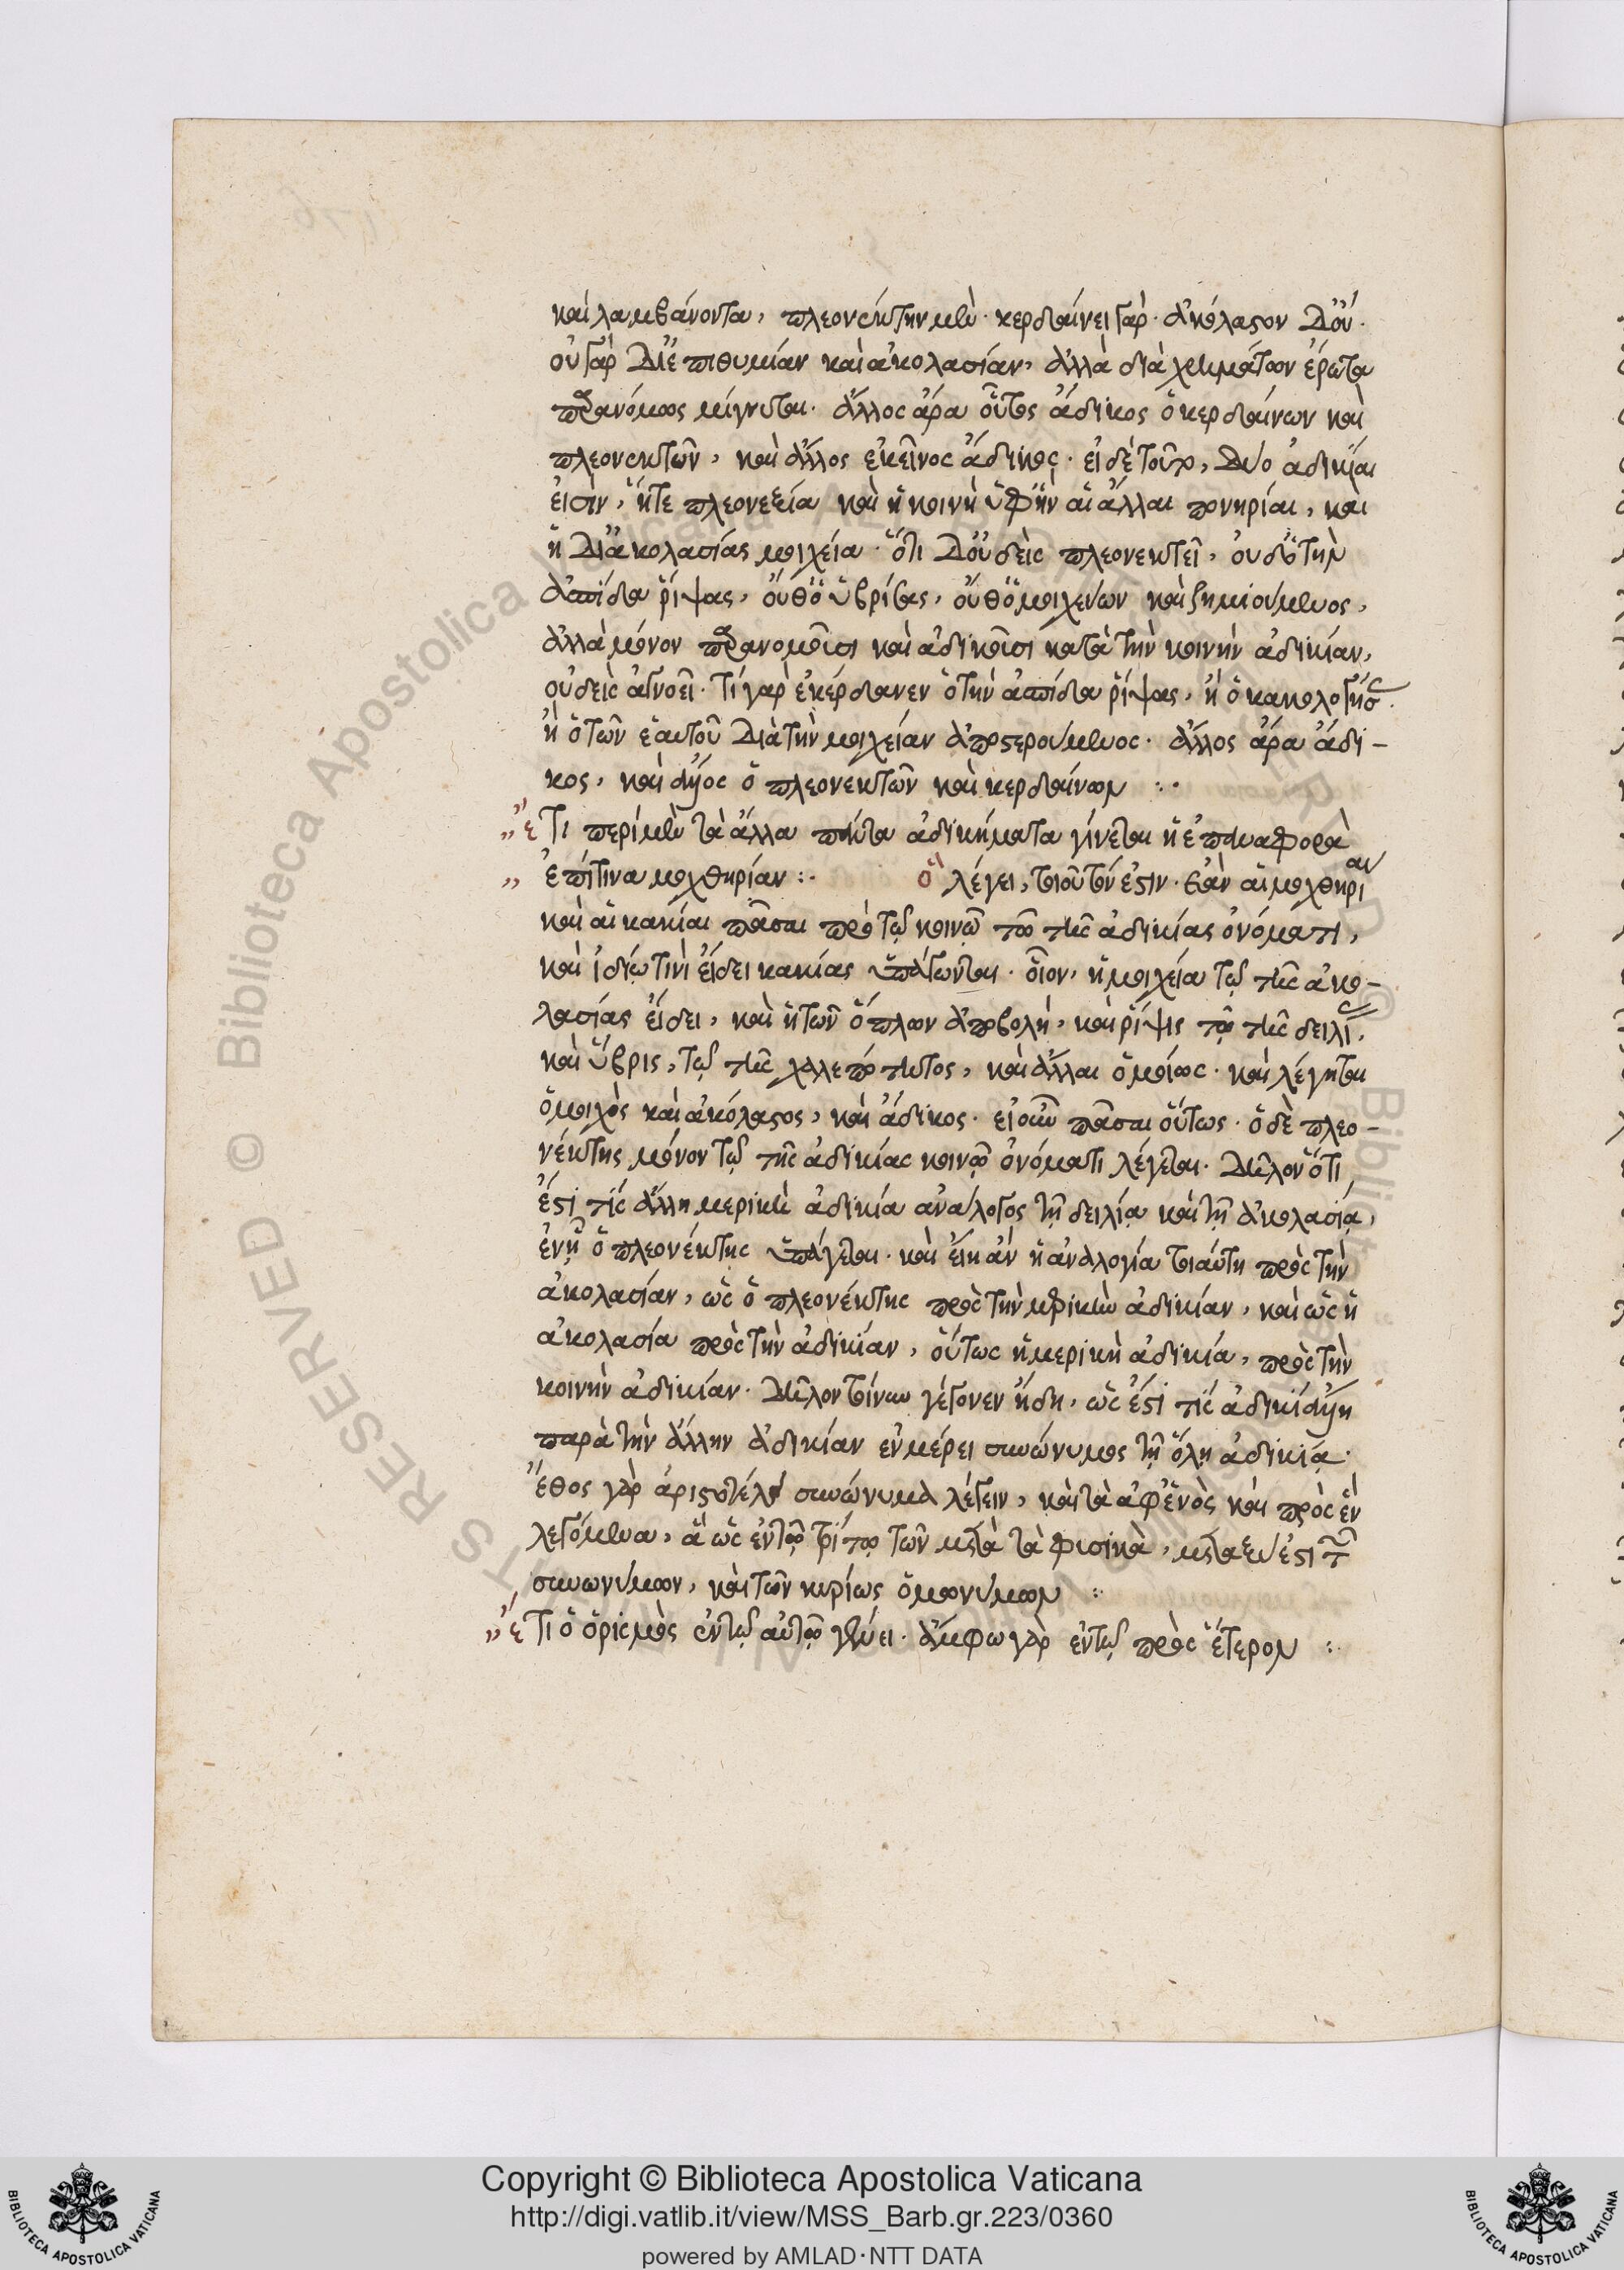 καὶ λαμβάνοντα, πλεονέκτην μὲν· κερδαίνει γάρ· ἀκόλαστον δ' οὔ·
οὐ γὰρ δι' ἐπιθυμίαν καὶ ἀκολασίαν, ἀλλὰ διὰ χρημάτων ἔρωτα
παρανόμως μίγνυται. ἄλλος ἄρα οὗτος ἄδικος ὁ κερδαίνων καὶ
πλεονεκτῶν, καὶ ἄλλος ἐκεῖνος ἄδικος· εἰ δὲ τοῦτο, δύο ἀδικίαι
εἰσὶν, ἥτε πλεονεξία καὶ ἡ κοινὴ ὑφ' ἣν αἱ ἄλλαι πονηρίαι, καὶ
ἡ δι' ἀκολασίας μοιχεία· ὅτι δ' οὐδεὶς πλεονεκτεῖ, οὐδ' ὁ τὴν
ἀσπίδα ῥίψας, οὔθ' ὁ ὑβρίσας, οὔθ' ὁ μοιχεύων καὶ ζημιούμενος,
ἀλλὰ μόνον παρανομοῦσι καὶ ἀδικοῦσι κατὰ τὴν κοινὴν ἀδικίαν,
οὐδεὶς ἀγνοεῖ· τί γὰρ ἐκέρδανεν ὁ τὴν ἀσπίδα ῥίψας, ἢ ὁ κακολογήσας·
ἢ ὁ τῶν ἑαυτοῦ διὰ τὴν μοιχείαν ἀποστερούμενος· ἄλλος ἄρα ἄδι-
κος, καὶ ἄλλος ὁ πλεονεκτῶν καὶ κερδαίνων :·
,, ἔτι περὶ μὲν τὰ ἄλλα πάντα ἀδικήματα γίνεται ἡ ἐπαναφορὰ
,, ἐπί τινα μοχθηρίαν :· ὃ λέγει, τοιοῦτόν ἐστιν· ἐὰν αἱ μοχθηρίαι
καὶ αἱ κακίαι πᾶσαι πρὸς τῷ κοινῷ τῷ τῆς ἀδικίας ὀνόματι,
καὶ ἰδίῳ τινὶ εἴδει κακίας ὑπάγωνται· οἷον, ἡ μοιχεία τῷ τῆς ἀκο-
λασίας εἴδει, καὶ ἡ τῶν ὅπλων ἀποβολή, καὶ ῥίψις τῷ τῆς δειλίας,
καὶ ὕβρις, τῷ τῆς χαλεπότητος, καὶ ἄλλαι ὁμοίως· καὶ λέγηται
ὁ μοιχὸς καὶ ἀκόλαστος, καὶ ἄδικος· εἰ οὖν πᾶσαι οὕτως· ὁ δὲ πλεο-
νέκτης μόνον τῷ τῆς ἀδικίας κοινῷ ὀνόματι λέγεται· δῆλον ὅτι
ἔστι τίς ἄλλη μερικὴ ἀδικία ἀνάλογος τῇ δειλίᾳ καὶ τῇ ἀκολασίᾳ,
ἐν ᾗ ὁ πλεονέκτης ὑπάγεται· καὶ εἴη ἂν ἡ ἀναλογία τοιαύτη πρὸς τὴν
ἀκολασίαν, ὡς ὁ πλεονέκτης πρὸς τὴν μερικὴν ἀδικίαν, καὶ ὡς ἡ
ἀκολασία πρὸς τὴν ἀδικίαν, οὕτως ἡ μερικὴ ἀδικία, πρὸς τὴν
κοινὴν ἀδικίαν. δῆλον τοίνυν γέγονεν ἤδη, ὡς ἔστι τίς ἀδικία ἄλλη
παρὰ τὴν ἄλλην ἀδικίαν ἐν μέρει συνώνυμος τῇ ὅλῃ ἀδικίᾳ·
ἔθος γὰρ ἀριστοτέλει συνώνυμα λέγειν, καὶ τὰ ἀφ' ἑνὸς καὶ πρὸς ἓν
λεγόμενα, ἃ ὡς ἐν τῷ τρίτῳ τῶν μετὰ τὰ φυσικὰ, μεταξύ ἐστι τῶν
συνωνύμων, καὶ τῶν κυρίως ὁμωνύμων :
,, ἔτι ὁ ὁρισμὸς ἐν τῷ αὐτῷ γένει· ἄμφω γὰρ ἐν τῷ πρὸς ἕτερον :
© Biblioteca Apostolica Vaticana ALL RIGHTS RESERVED
Copyright © Biblioteca Apostolica Vaticana
http://digi.vatlib.it/view/MSS_Barb.gr.223/0360
powered by AMLAD·NTT DATA
BIBLIOTECA APOSTOLICA VATICANA
BIBLIOTECA APOSTOLICA VATICANA